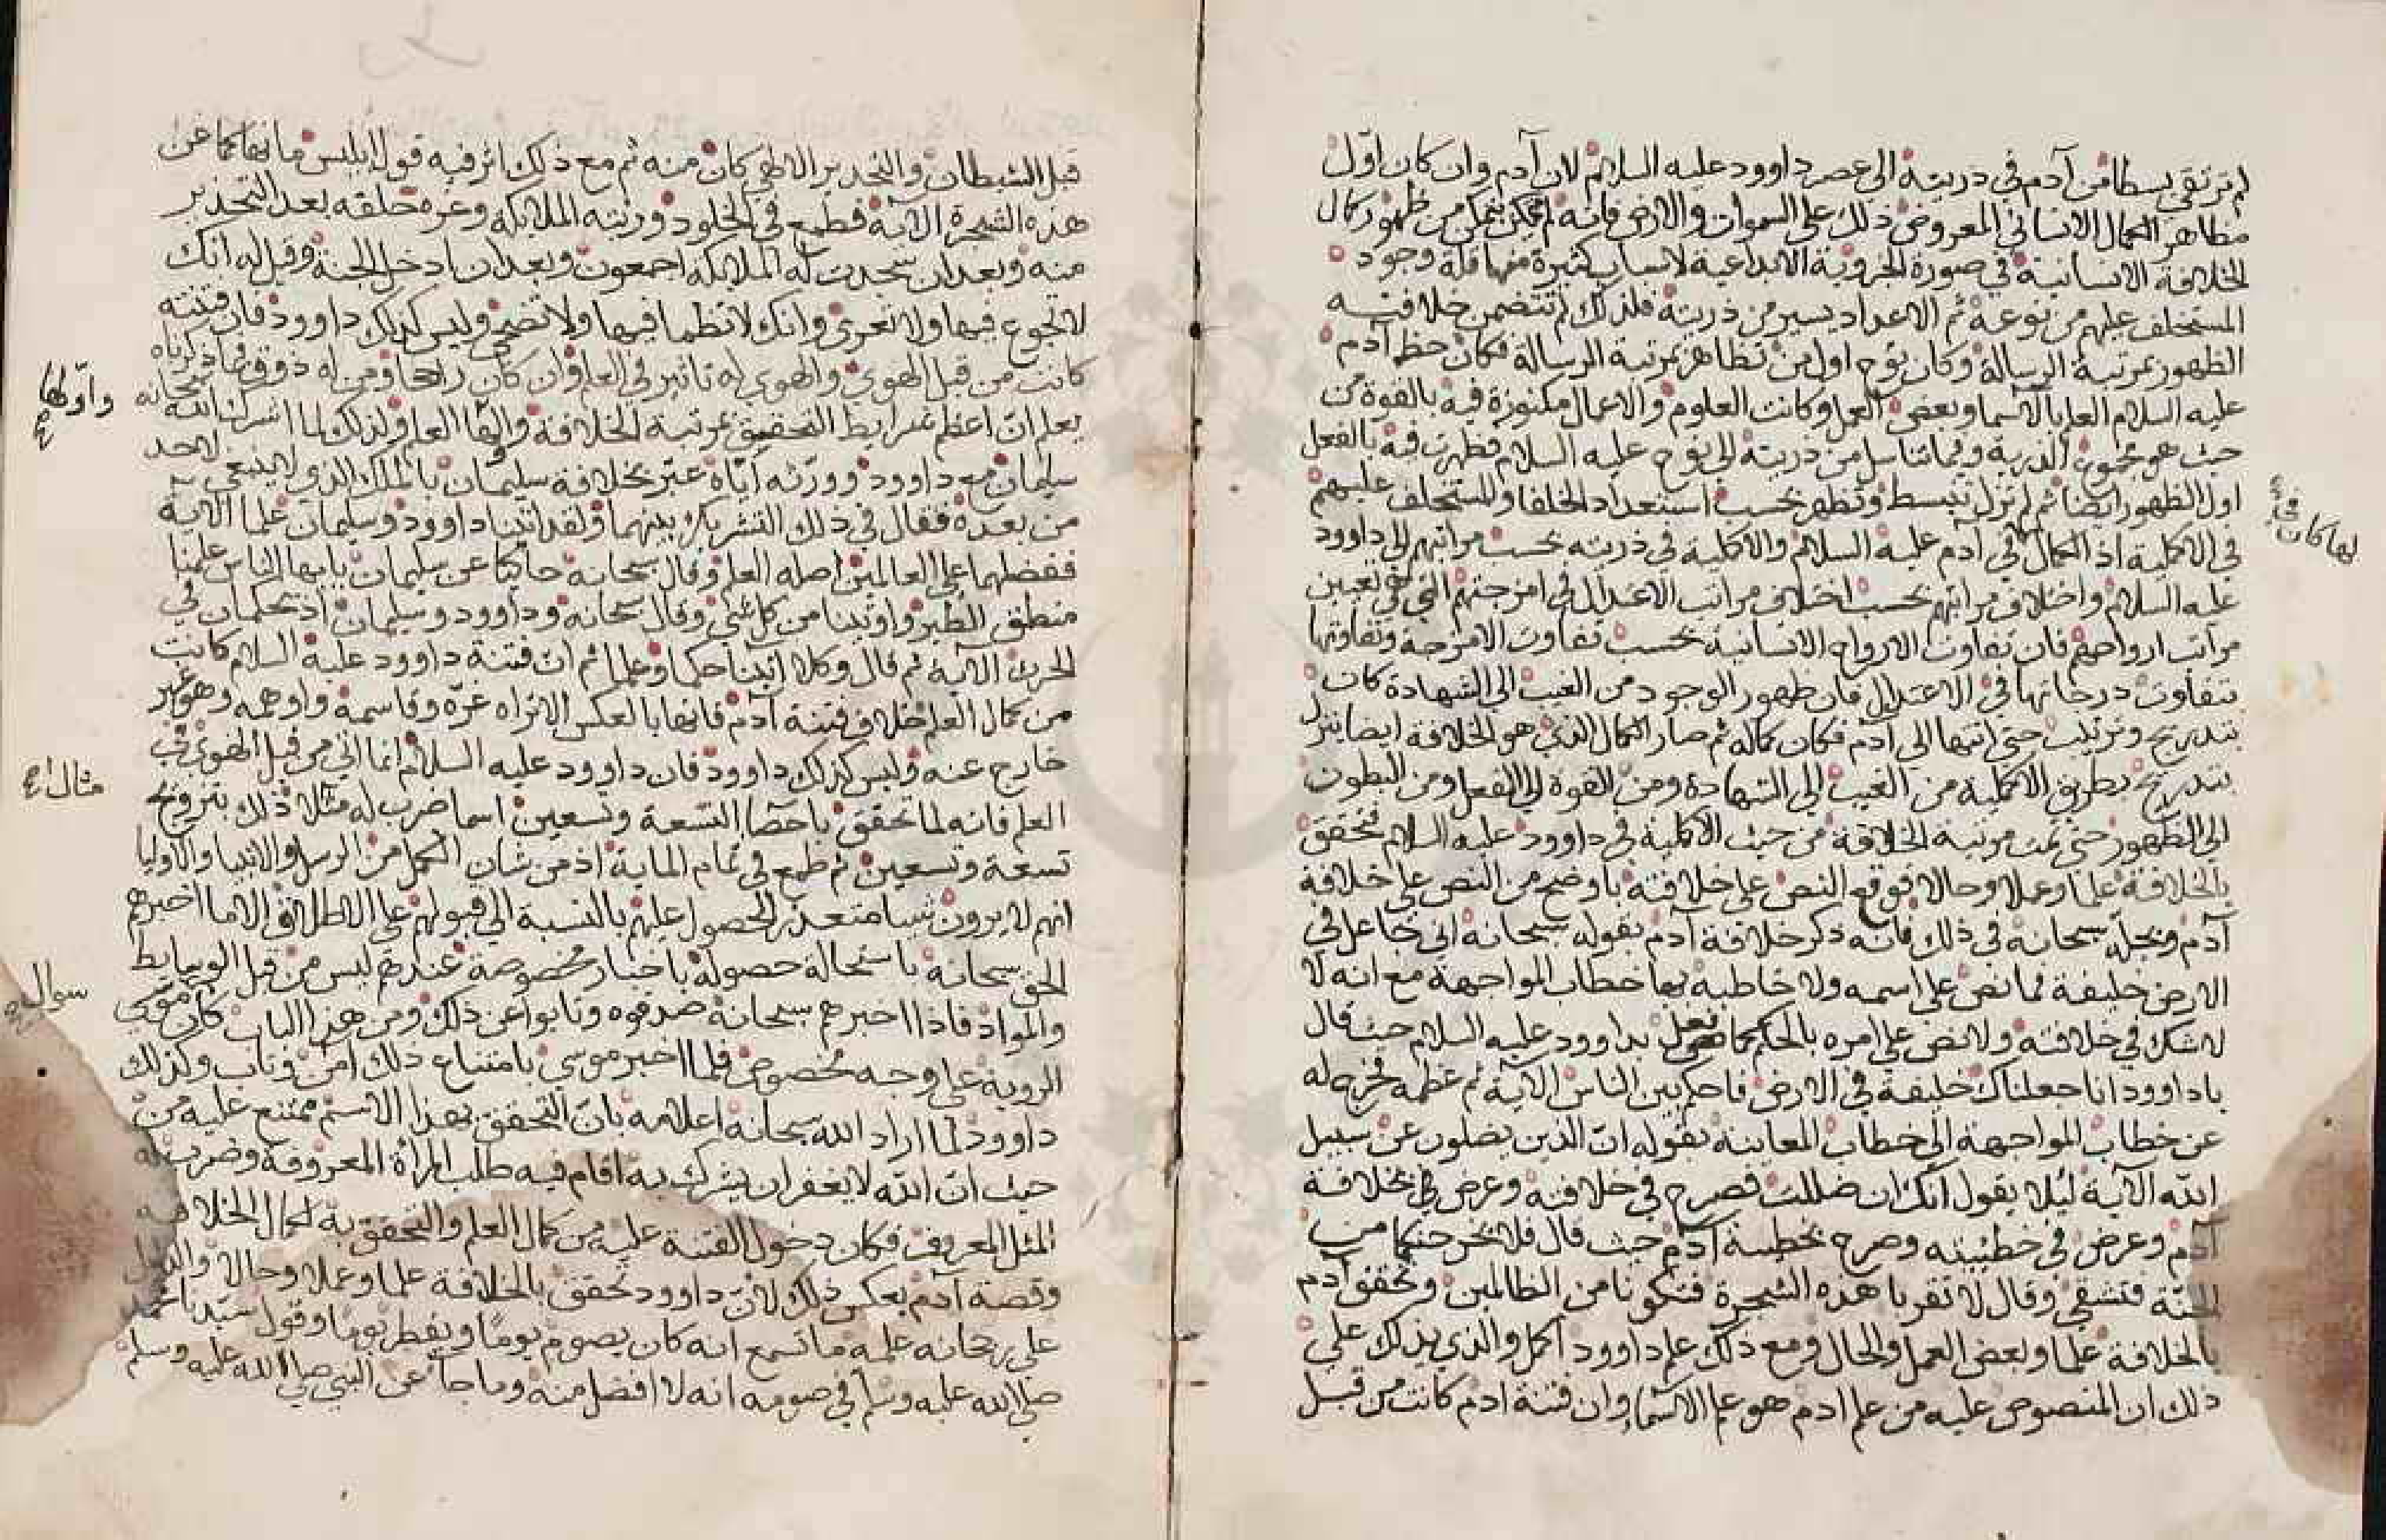 لم ترتقي بسطا من آدم في ذريته الى عصر داوود عليه السلام لان آدم وان كان اول
مظاهر الكمال الانساني المعروض ذلك على السموات والارض فانه لم يمكن يتمكن من ظهور كمال
الخلافة الانسانية في صورة الجزوية الابداعية لاسباب كثيرة منها قلة وجود
المستخلف عليهم من نوعه ثم الاعداد يسير من ذريته فلذلك لم تتضمن خلافته
الظهور بمرتبة الرسالة وكان نوح اول من تظاهر بمرتبة الرسالة فكان حظ آدم
عليه السلام العلم بالاسما وبعض العمل وكانت العلوم والاعمال مكنوزة فيه بالقوة من
حيث هو مجموع الذرية وفيما تناسل من ذريته الى نوح عليه السلام فظهرت فيه بالفعل
اول الظهور ايضا ثم لم تزل تبسط وتظهر بحسب استعداد الخلفا والمستخلف عليهم
في الاكملية اذ الكمال في آدم عليه السلام والاكملية في ذريته بحسب مراتبهم الى داوود
عليه السلام واختلاف مراتبهم بحسب اختلاف مراتب الاعتدال في امزجتهم التي هي تعيين
مراتب ارواحهم فان تفاوت الارواح الانسانية بحسب تفاوت الامزجة وتفاوتها
بتفاوت درجاتها في الاعتدال فان ظهور الوجود من الغيب الى الشهادة كان
بتدريج وترتيب حتى انتهى الى آدم فكان كماله ثم صار الكمال الذي هو الخلافة ايضا ينزل
بتدريج بطريق الاكملية من الغيب الى الشهادة ومن القوة الى الفعل ومن البطون
الى الظهور حتى تمت مرتبة الخلافة من حيث الاكملية في داوود عليه السلام فتحقق
بالخلافة علما وعملا وحالا فوقع النص على خلافته باوضح من النص على خلافة
آدم سبحانه في ذلك فانه ذكر خلافة آدم بقوله سبحانه اني جاعل في
الارض خليفة فما نص على اسمه ولا خاطبه بها خطاب المواجهة مع انه لا
لا شك في خلافته ولا نص على امره بالحكم كما بداوود عليه السلام حيث قال
يا داوود انا جعلناك خليفة في الارض فاحكم بين الناس الآية ثم عظمه فخرج له
عن خطاب المواجهة الى خطاب المعاينة بقوله ان الذين يضلون عن سبيل
الله الآية ليلا يقول انك ان ضللت فصرح في خلافته وعرض في خلافة
آدم وعرض في خطيئته وصرح بخطيئة آدم حيث قال فلا يخرجنكما من
الجنة فتشقى وقال لا تقربا هذه الشجرة فتكونا من الظالمين وتحقق آدم
بالخلافة علما وبعض العمل والحال ومع ذلك علم داوود اكمل والذي يدلك على
ذلك ان المنصوص عليه من علم ادم هو علم الاسماء وان فتنة ادم كانت من قبل
لها كان
قبل الشيطان والتحذير الالاهي كان منه ثم مع ذلك اثر فيه قول ابليس ما نهاكما عن
هذه الشجرة الآية فطمع في الخلود ورتبة الملايكة وغره حلفه بعد التحذير
منه وبعد ان سجدت له الملايكة اجمعون وبعد ان ادخل الجنة وقيل له انك
لا تجوع فيها ولا تعرى وانك لا تظما فيها ولا تضحى وليس كذلك داوود فان فتنته
كانت من قبل الهوى والهوى له تاثير في العلم وان كان راجحا ومن له ذوق فيما ذكرناه
يعلم ان اعظم شرايط التحقيق بمرتبة الخلافة العلم ولذلك لما اشرك الله سبحانه
سليمان مع داوود وورثه اياه عبر بخلافة سليمان بالملك الذي لا ينبغي لاحد
من بعده فقال في ذلك التشريك بينهما ولقد اتينا داوود وسليمان علما الآية
ففضلهما على العالمين اصله العلم وقال سبحانه حاكيا عن سليمان يا ايها الناس علمنا
منطق الطير واوتينا من كل شي وقال سبحانه وداوود وسليمان اذ يحكمان في
الحرث الآية ثم قال وكلا اتينا حكما وعلما ثم ان فتنة داوود عليه السلام كانت
من كمال العلم خلاف فتنة آدم فانها بالعكس الا تراه غره وقاسمه واوهمه وهو غير
خارج عنه وليس كذلك داوود فان داوود عليه السلام انما اتي من قبل الهوى في
العلم فانه لما تحقق باحصا التسعة وتسعين اسما ضرب له مثلا ذلك بتزويج
تسعة وتسعين ثم طمع في تمام الماية اذ من شان الكمل من الرسل والانبيا والاوليا
انهم لا يرون شيا متعذر الحصول عليهم بالنسبة الى قبولهم على الاطلاق الا ما اخبرهم
الحق سبحانه باستحالة حصوله باخبار مخصوصة عندهم ليس من قبل الوسايط
والمواد فاذا اخبرهم سبحانه صدقوه وتابوا عن ذلك ومن هذا الباب كان موسى
الروية على وجه مخصوص فلما اخبر موسى بامتناع ذلك امن وتاب وكذلك
داوود لما اراد الله سبحانه اعلامه بان التحقق بهذا الاسم ممتنع عليه من
حيث ان الله لا يغفر ان يشرك به اقام فيه طلب المراة المعروفة وضرب له
المثل المعروف فكان دخول الفتنة عليه من كمال العلم والتحقق به لكمال الخلافة
وقصة آدم بعكس ذلك لان داوود تحقق بالخلافة علما وعملا وحالا
على رجحانه علمه ما تسمع انه كان يصوم يوما ويفطر يوما وقول سيدنا محمد
صلى الله عليه وسلم في صومه انه لا افضل منه وما جا عن النبي صلى الله عليه وسلم
واولها
مثال
سوال